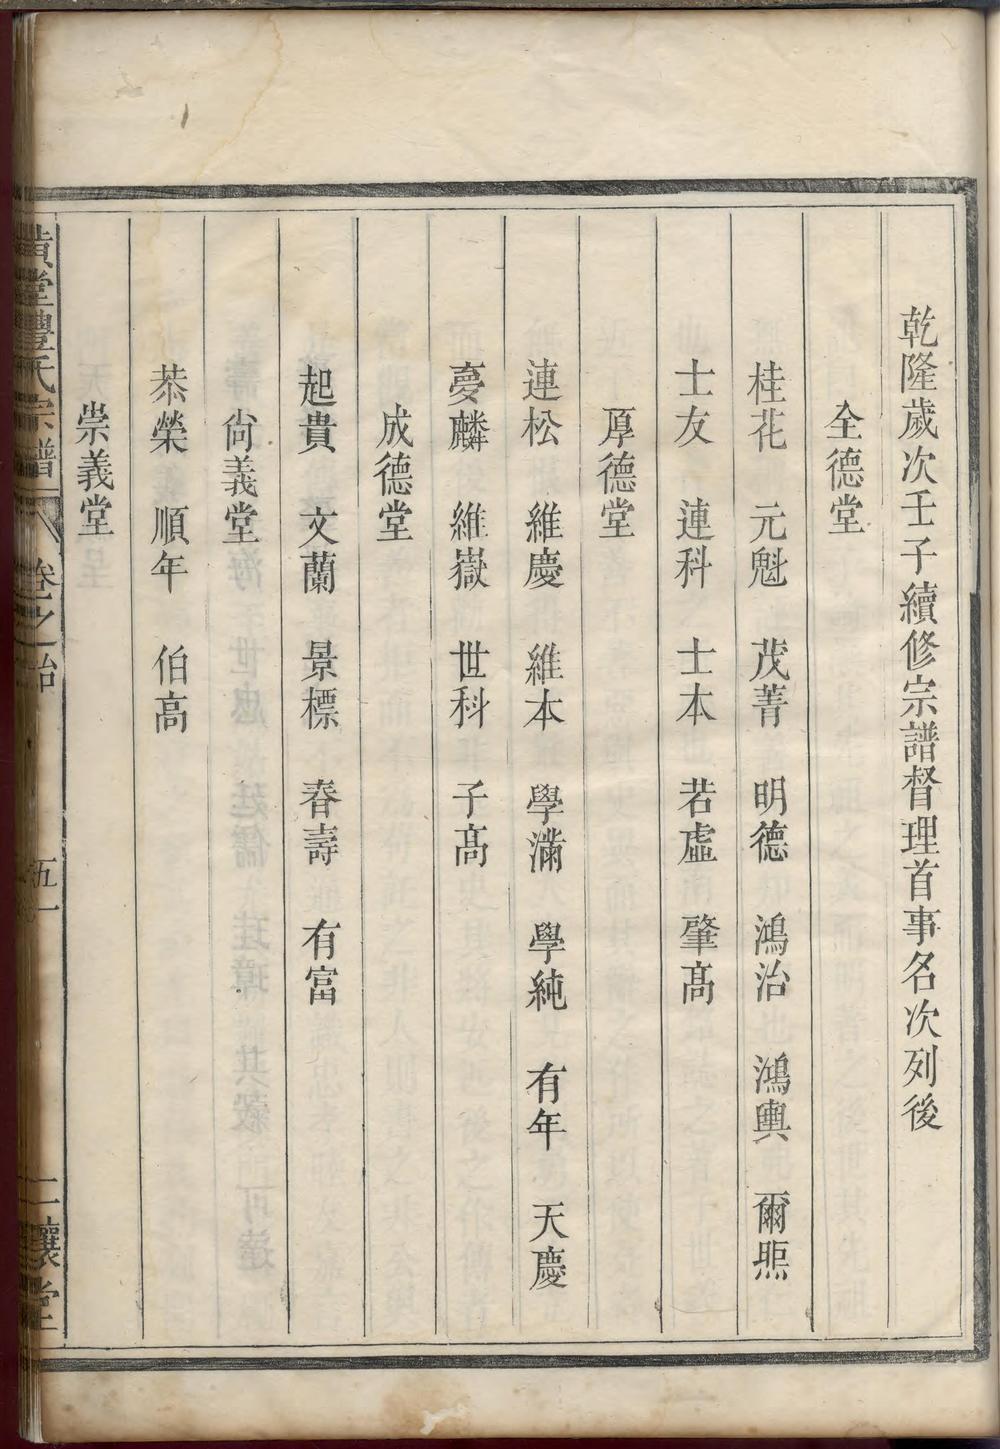 乾隆歲次壬子續修宗譜督理首事名次列後
全德堂
桂花 元魁 茂菁 明德 鴻治 鴻輿 爾熙
士友 連科 士本 若虛 肇高
厚德堂
連松 維慶 維本 學滿 學純 有年 天慶
夢麟 維嶽 世科 子高
成德堂
起貴 文蘭 景標 春壽 有富
尙義堂
恭榮 順年 伯高
崇義堂
黄堂豐氏宗譜 卷之 五一 讓堂